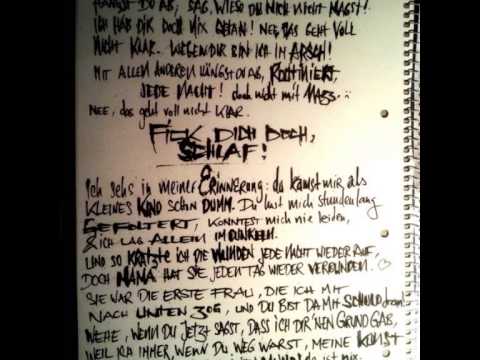 HÄNGST DU AB, SAG, WIESO DU MICH NICHT MAGST!
ICH HAB DIR DOCH NIX GETAN! NEE, DAS GEHT VOLL
NICHT KLAR. WEGEN DIR BIN ICH IM ARSCH!
MIT ALLEN ANDEREN HÄNGST DU AB, ROUTINIERT,
JEDE NACHT! doch nicht mit MAZS...
NEE, das geht voll nicht KLAR.
FICK DICH DOCH,
SCHLAF!
Ich sehs in meiner Erinnerung: du kamst mir als
KLEINES KIND SCHON DUMM. Du hast mich stundenlang
GEFOLTERT, KONNTEST mich nie leiden,
& ICH LAG ALLEIN IM DUNKELN.
UND SO KRATZTE ICH DIE WUNDEN JEDE NACHT WIEDER AUF,
DOCH MAMA HAT SIE JEDEN TAG WIEDER VERBUNDEN. ♡
SIE WAR DIE ERSTE FRAU, DIE ICH MIT
NACH UNTEN ZOG, UND DU BIST DAMIT SCHULD dran!
WEHE, WENN DU JETZT SAGST, DASS ICH DIR 'NEN GRUND GAB,
WEIL ICH IMMER, WENN DU WEG WARST, MEINE KUNST